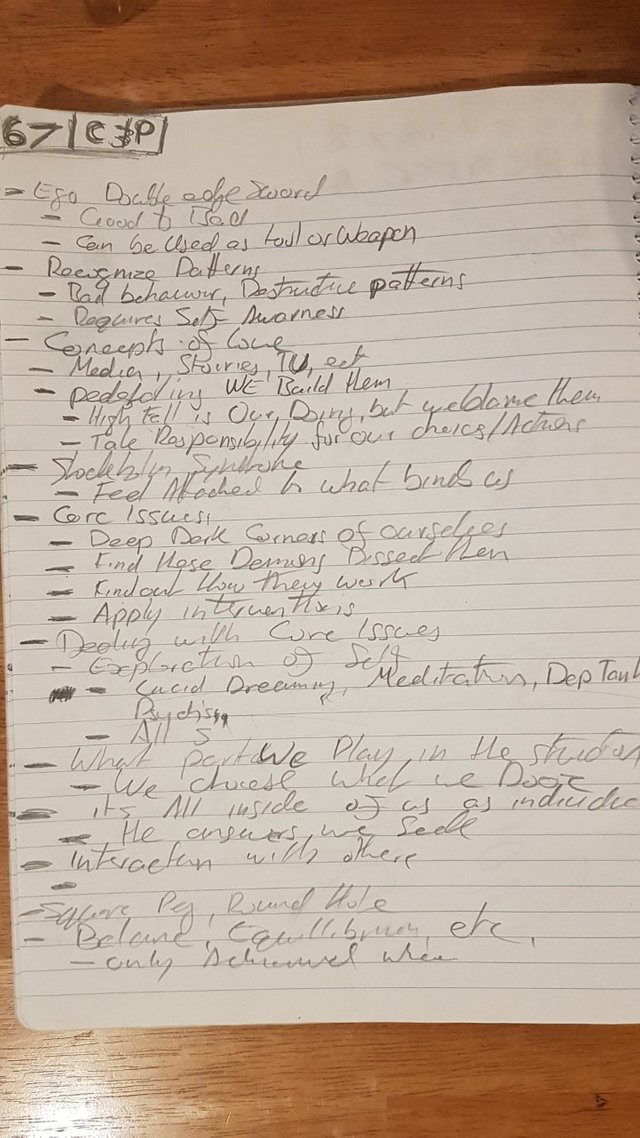 67 | C & P |
- Ego Double edge Sword
- Good to Bad
- Can be Used as tool or Weapon
- Recognize Patterns
- Bad behaviour, Destructive patterns
- Requires Self Awarness
- Concepts of Love
- Media, Stories, TV, ect
- WE Build them
- High Fall is Our Doing, but we blame them
- Take Responsibility for our choices/Actions
- Syndrome
- Feel Attached to what binds us
- Core Issues,
- Deep Dark Corners of ourselves
- Find these Demons Dissect them
- Find out How they work
- Apply interventions
- Dealing with Core Issues
- Exploration of Self
- Lucid Dreaming, Meditation, Dep Tank
- All 5
- What part We Play in the
- We choose what we
- its All inside of us as
- the answers we Seek
- Interaction with others
-
- Square Peg, Round Hole
- Balanc, Equillibrium, etc.
- only Achieved when